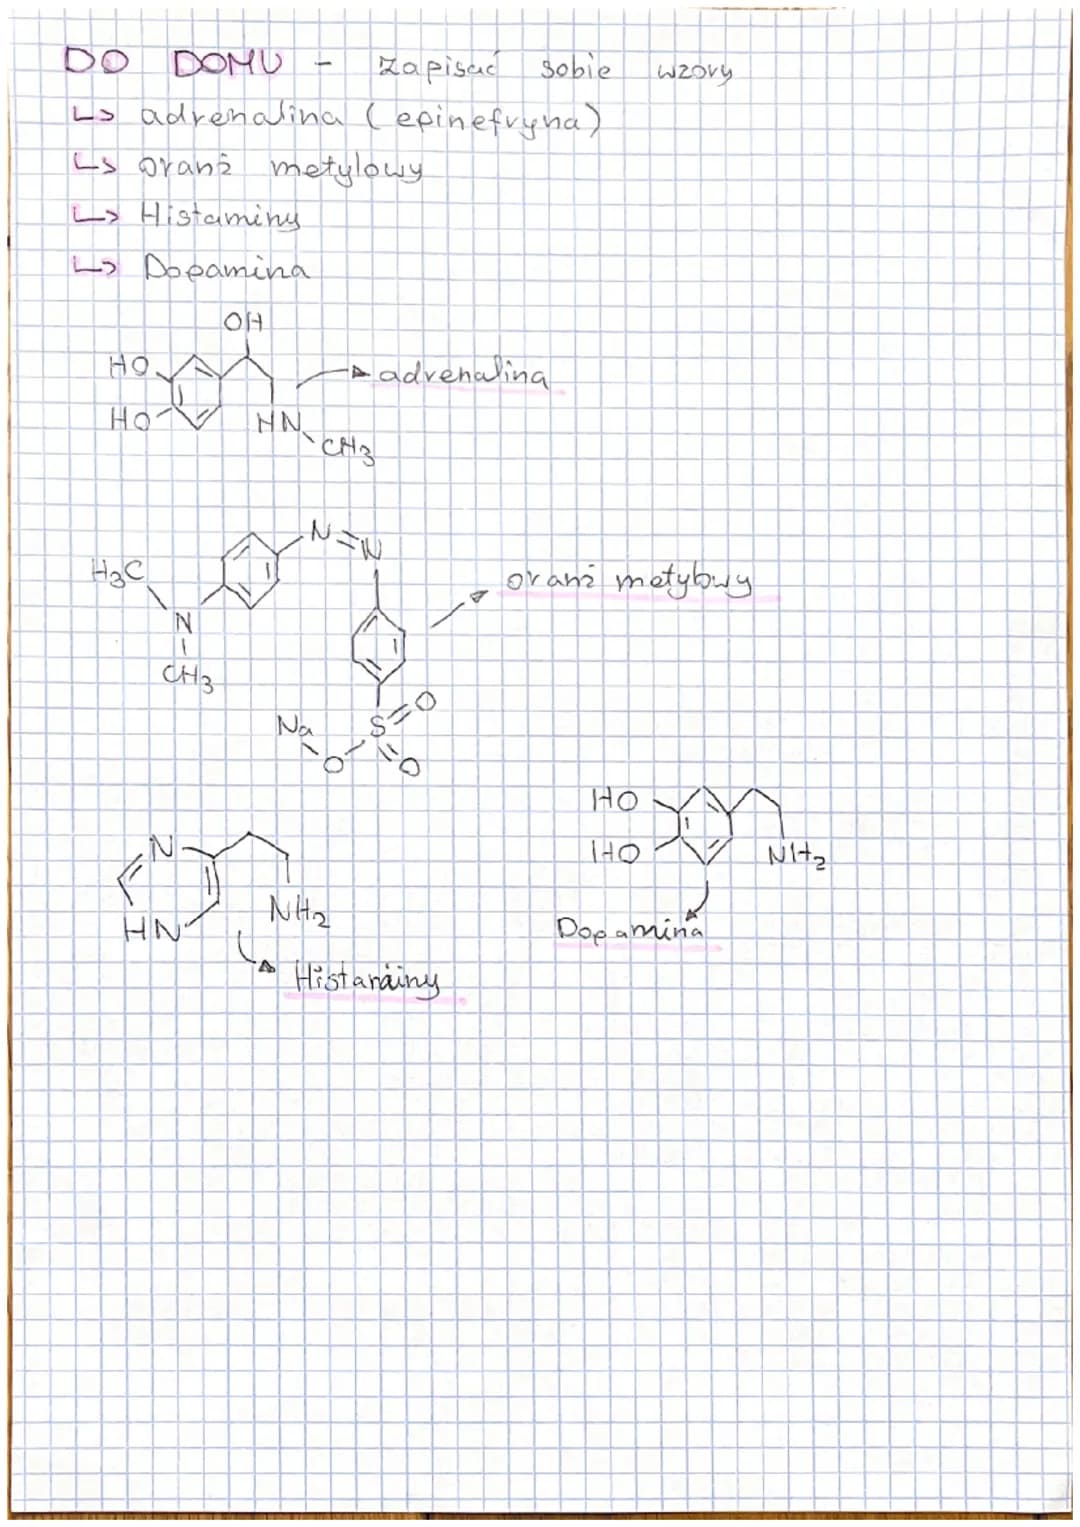 DO DOMU - zapisać sobie wzory
↳ adrenalina (epinefryna)
↳ oranż metylowy
↳ Histaminy
↳ Dopamina
OH
HO
HO
HN
CH3
adrenalina
N=N
H3C
N
CH3
oranż metylowy
Na
O
S
O
O
HO
HO
NH2
Dopamina
N
HN
NH2
Histaminy